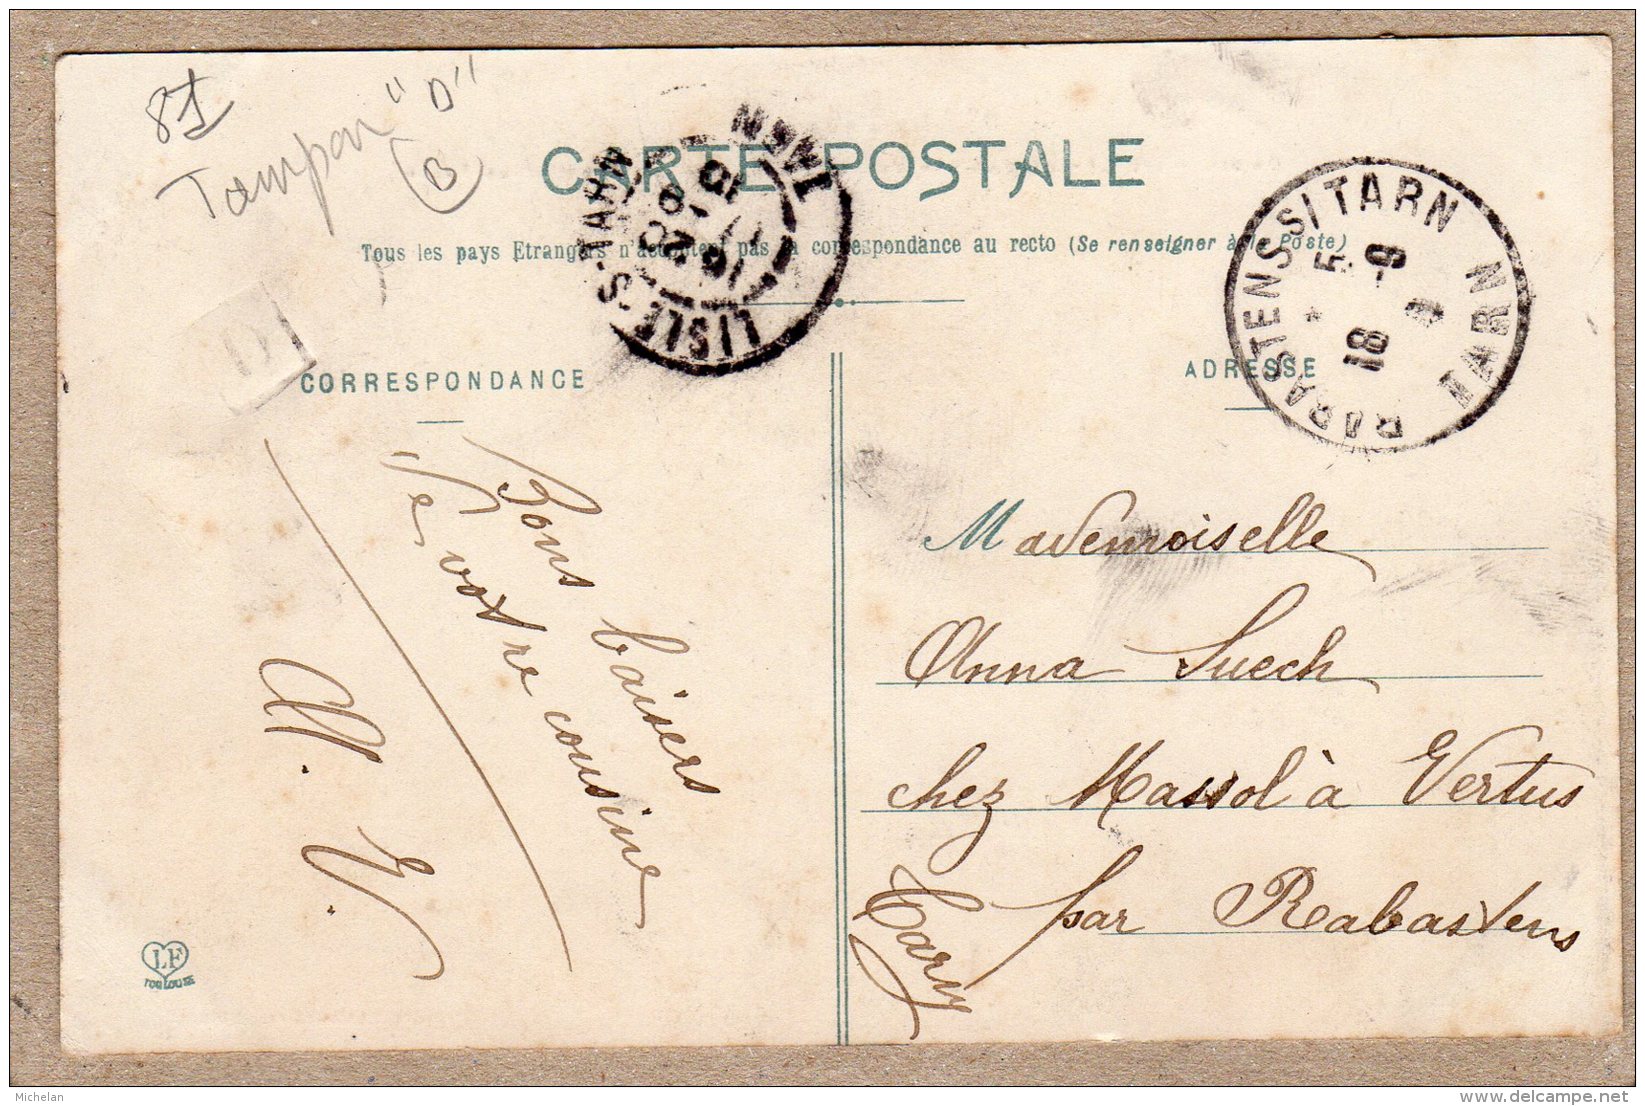 81
Tampon "D"
B
CARTE POSTALE
Tous les pays Etrangers n'acceptent pas la correspondance au recto (Se renseigner à la Poste)
LISLE-S-TARN
TARN
RABASTENS S/ TARN
TARN
5
18 -9
CORRESPONDANCE
ADRESSE
Bons baisers
de votre cousine
Mademoiselle
Anna Suech
chez Massol à Vertus
par Rabastens
Tarn
LF
TOULOUSE
Michelan
delcampe.net